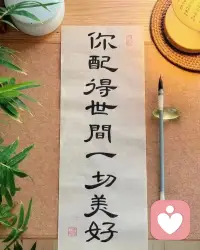 你配得世間一切美好